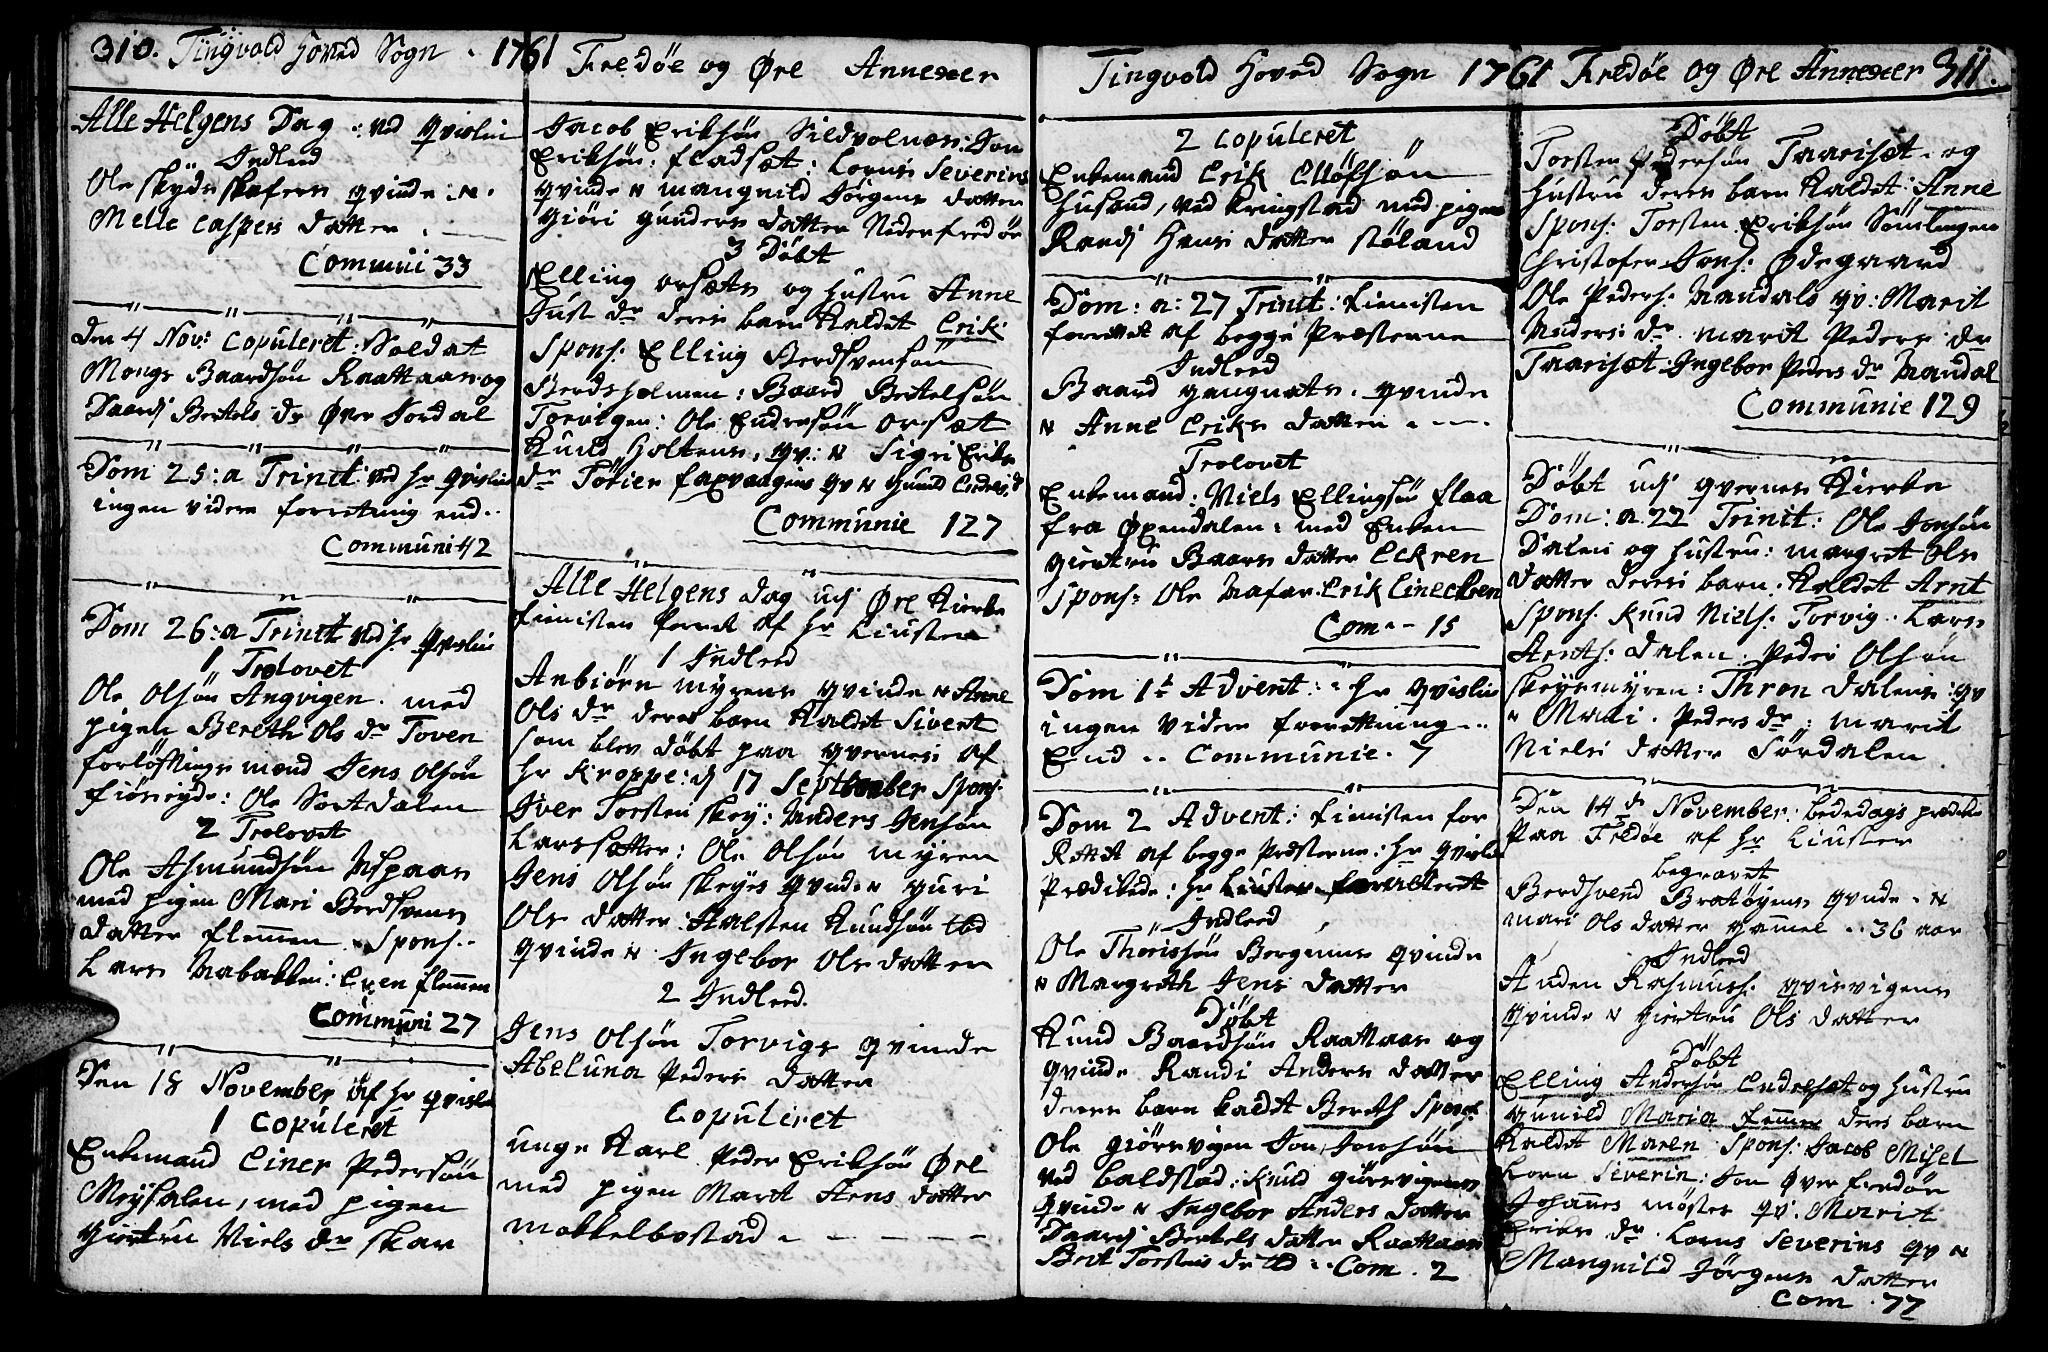 310. Tingvold Hoved Sogn . 1761
Alle Helgens Dag : ved Qvislin
Indleed
Ole skyds skafers qvinde : N.
Melle Caspers datter .
Communi 33
den 4 Nov: Copuleret : Soldat
Mongs Baardsøn Raattaas og
Baardj Bertels dr Øvre Sordal
Dom 25 : a Trinit: ved Hr Qvislin
ingen videre forretning end ..
Communi 42
Dom 26 : a Trinit ved Hr Qvislin
1 Trolovet
Ole Olsøn Angvigen . med
pigen Bereth Ols dr Toven
forløftnings mænd Jens Olsøn
: Ole Sortdalen
2 Trolovet
Ole Asmundsøn Aspaas
med pigen Mari Berdsvens
datter flemmen . Spons ..
Lars Nabakken : Even flemmen
Communi 27
Den 18 November af Hr Qvislin
1 Copuleret
Enkemand Einer Pedersøn
Meysalen, med pigen
Giertru Niels dr skar
Fredøe og Øre Annexer
Jacob Eriksøn Sildvolnes : Jon
Eriksøn : fladsæt : Lorns Severins
qvinde N Mangnild Jørgens datter
Giöri Gunders datter Nederfredøe
3 Døbt
Elling orsæter og Hustru Anne
Just dr deres barn kaldet Erik
Spons. Elling Berdsvensøn
Berdsholmen : Baard Bertelsøn
Torvigen : Ole Endresøn orsæt
Knud Holtens, qv: N Sigri Eriks
dr Törier faxvaagens qv N Gunild Endres d
Communie 127
Alle Helgens dag udj Øre Kierke
tienisten forret af Hr Liuster
1 Indleed
Anbiørn myrens qvinde N Anne
Ols dr deres barn kaldet Sivert
som blev døbt paa qvernes af
Hr Kroppe : d 17 September Spons.
Iver Torsten skey : Anders Jensøn
Larssætter : Ole Olsøn myren
Jens Olsøn skeyes qvinde N guri
Ols datter : Halsten Knudsøn ibd
qvinde N Ingebor Ols datter
2 Indleed.
Jens Olsøn Torvigs qvinde
Abeluna Peders datter
Copuleret
unge Karl Peder Eriksøn Øre
med pigen Marit Jens datter
mokkelbostad . — — — —
Tingvold Hoved Sogn 1761
2 Copuleret
Enkemand Erik Ellöfsøn
Husmand, ved Kringstad med pigen
Randj Hans datter støland
Dom : a : 27 Trinit : tienisten
forrettet af begge Præsterne
Indleed
Baard gangnats . qvinde
N Anne Eriks datter . — — .
Trolovet
Enkemand : Niels Ellingsøn flaa
fra Øxendalen : med Enken
giertru Baars datter Eckren
Spons: Ole Nafar . Erik
Com — 15
Dom 1t Advent : . Hr Qvislin
ingen videre forrettning ..
End .. Communie . 7
Dom 2 Advent : tienisten for
Rettet af begge præsterne : Hr Qvislin
Prædikede : Hr Liuster
Indleed
Ole Thorissøn Bergums qvinde
N Margreth Jens datter
Døbt
Knud Baardsøn Raattaas og
qvinde Randi Anders datter
deres barn kaldet Bereth Spons.
Ole giörsvigen Jon Jonsøn
ved baldstad : Knud giörsvigens
qvinde N Ingebor Anders datter
Baardj Bertels datter Raattaas
Berit Torstens dr ibd .. Com . 2
Fredøe og Øre Annexer 311.
Døbt
Torsten Pedersøn Taarisæt . og
Hustru deres barn kaldet : Anne
Spons: Torsten Eriksøn Sömlingen
Christofer Jons: Ødegaard
Ole Peders: Nandals qv: Marit
Anders dr . marit Peders dr
Taarisæt . Ingebor Peders dr Nandal
Communie 129
Døbt udj qvernes Kierke
Dom : a . 22 Trinit : Ole Jonsøn
Dalen og Hustru : margret Ols
datter deres barn . kaldet Arnt
Spons. Knud Niels: Torvig .. Lars
Arnts: dalen . Peder Olsøn
skeysmyren : Thron dalens : qv
N Mari . Peders dr : marit
Niels datter Sördalen .
Den 14 dr November . bededags prædiken
Paa Fredøe af Hr Liuster
begravet
Berdsvend Bratøyens qvinde . N
mari Ols datter gammel .. 36 aar
Indleed
Auden Rasmuss: qvisvigens
qvinde N Giertru Ols datter
Døbt
Elling Andersøn Endresæt og Hustru
Gunild Maria deres barn
kaldet Maren Spons: Jacob Misel
Lorn Severin : Jon Øvre fredøe
Johannes möster qv: Marit
Eriks dr . Lorns Severins qv N
Mangnild Jørgens datter
Com . 77